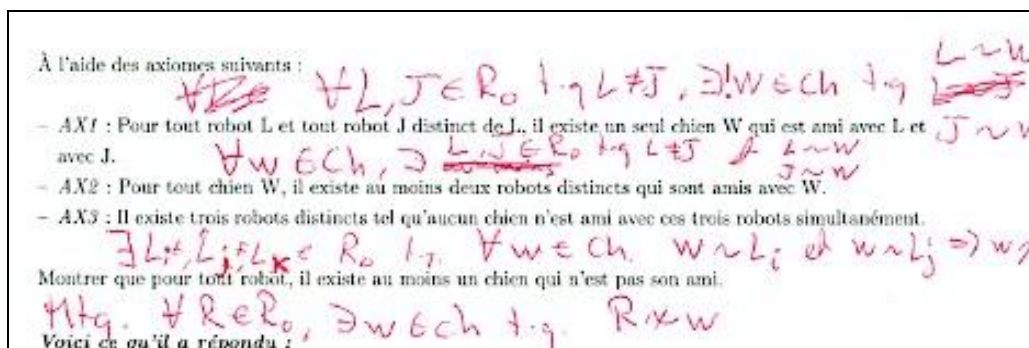 À l'aide des axiomes suivants :
∀L, J ∈ R₀ t.q L ≠ J, ∃!W ∈ Ch t.q L ~ W
– AX1 : Pour tout robot L et tout robot J distinct de L, il existe un seul chien W qui est ami avec L et J ~ W
avec J.
∀w ∈ Ch, ∃ L, J ∈ R₀ t.q L ≠ J et L ~ W
J ~ W
– AX2 : Pour tout chien W, il existe au moins deux robots distincts qui sont amis avec W.
– AX3 : Il existe trois robots distincts tel qu'aucun chien n'est ami avec ces trois robots simultanément.
∃ Lᵢ ≠ Lⱼ ≠ Lₖ ∈ R₀ t.q. ∀w ∈ Ch. w ~ Lᵢ et w ~ Lⱼ => w
Montrer que pour tout robot, il existe au moins un chien qui n'est pas son ami.
Mtq. ∀R ∈ R₀, ∃w ∈ Ch t.q. R ≁ w
Voici ce qu'il a répondu :